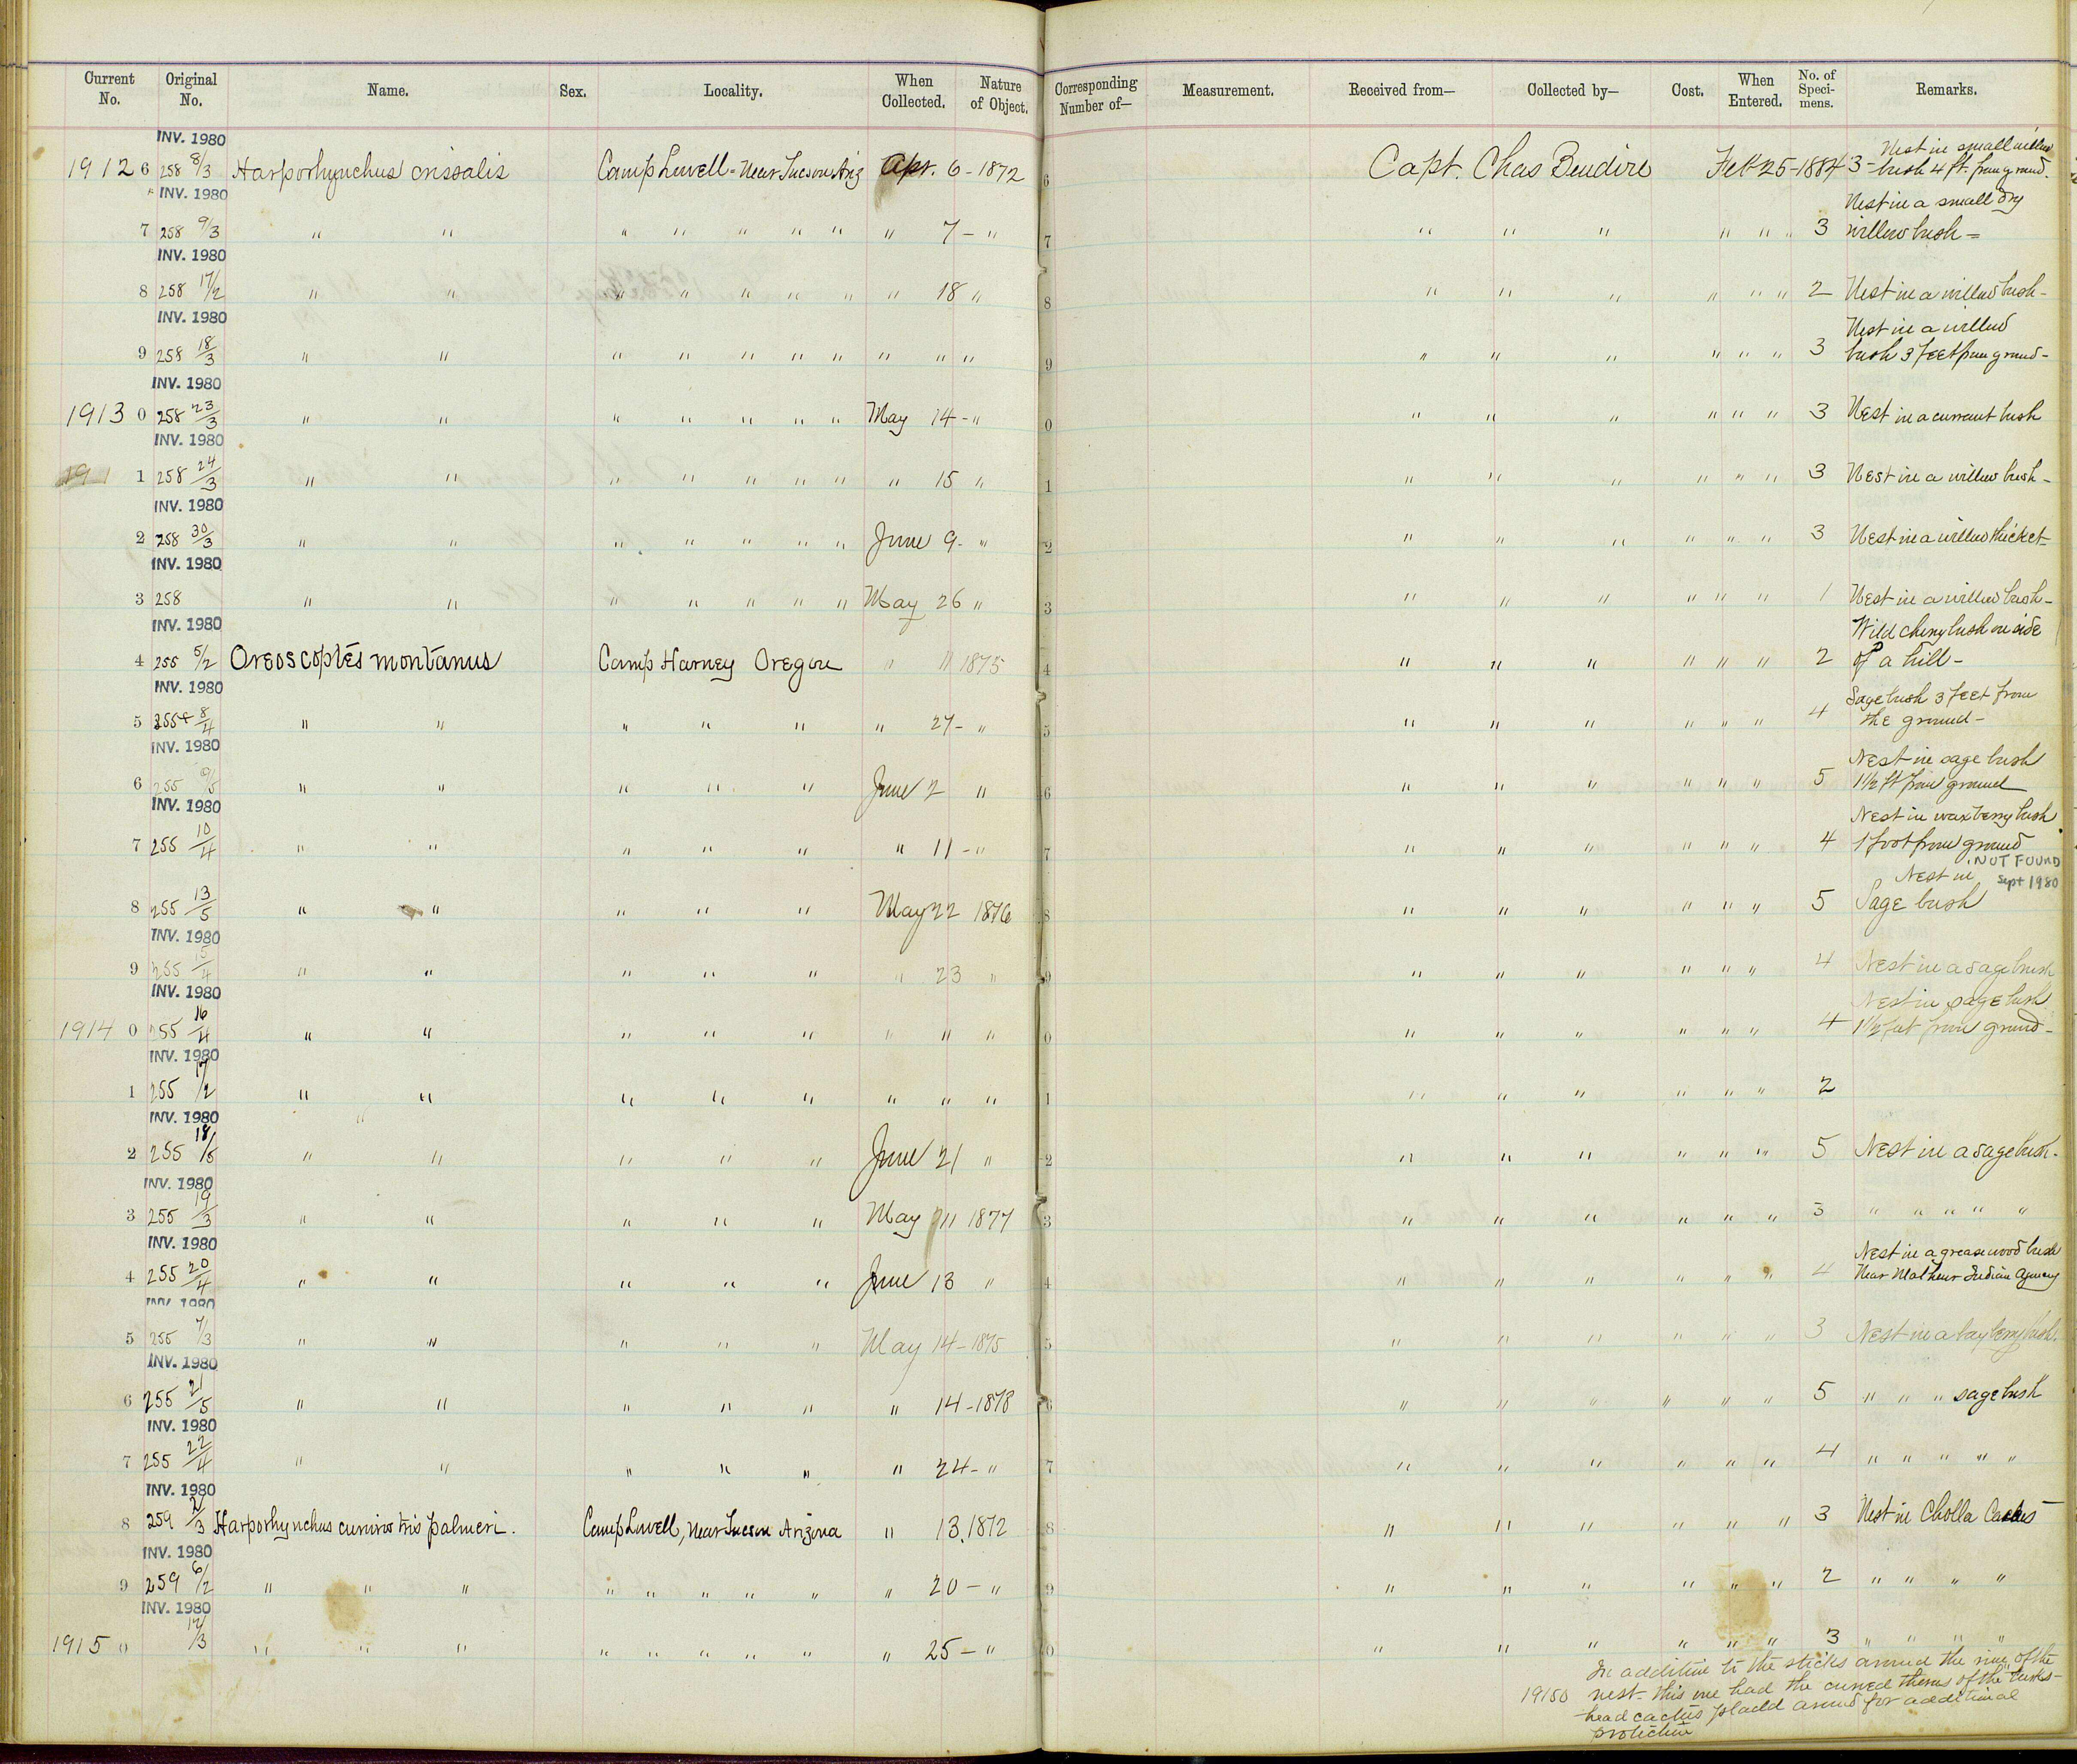 Current No. Original No. Name. Sex. Locality. When Collected. Nature of Object. Corresponding Number of— Measurement. Received from— Collected by— Cost. When Entered. No. of Speci-mens. Remarks.
INV. 1980
1912 6 258 8/3 Harporhynchus crissalis Camp Lowell - Near Tucson Ariz Apr. 6 - 1872 6 Capt. Chas Bendire Feb 25 - 1884 3 - Nest in small willow bush 4 ft. from ground.
INV. 1980
7 258 9/3 " " " " " " " " 7 - " 7 " " " " " " 3 Nest in a small dry willow bush =
INV. 1980
8 258 17/2 " " " " " " " " 18 " 8 " " " " " " 2 Nest in a willow bush -
INV. 1980
9 258 18/3 " " " " " " " " " " 9 " " " " " " 3 Nest in a willow bush 3 feet from ground -
INV. 1980
1913 0 258 23/3 " " " " " " " May 14 - " 0 " " " " " " 3 Nest in a currant bush
INV. 1980
191 1 258 24/3 " " " " " " " " 15 " 1 " " " " " " 3 Nest in a willow bush -
INV. 1980
2 258 30/3 " " " " " " " June 9 - " 2 " " " " " " 3 Nest in a willow thicket -
INV. 1980
3 258 " " " " " " " May 26 " 3 " " " " " " 1 Nest in a willow bush -
INV. 1980
4 255 5/2 Oreoscoptes montanus Camp Harney Oregon " " 1875 4 " " " " " " 2 Wild cherry bush on side of a hill -
INV. 1980
5 255 8/4 " " " " " " 27 - " 5 " " " " " " 4 Sage bush 3 feet from the ground -
INV. 1980
6 255 9/5 " " " " " June 2 " 6 " " " " " " 5 Nest in sage bush 1 1/2 ft from ground
INV. 1980
7 255 10/4 " " " " " " 11 - " 7 " " " " " " 4 Nest in waxberry bush 1 foot from ground
NOT FOUND Sept 1980
8 255 13/5 " " " " " May 22 1876 8 " " " " " " 5 Nest in Sage bush
INV. 1980
9 255 15/4 " " " " " " 23 " 9 " " " " " " 4 Nest in a sage bush
INV. 1980
1914 0 255 16/4 " " " " " " " " 0 " " " " " " 4 Nest in sage bush 1 1/2 feet from ground -
INV. 1980
1 255 17/2 " " " " " " " " 1 " " " " " " 2
INV. 1980
2 255 18/5 " " " " " June 21 " 2 " " " " " " 5 Nest in a sage bush -
INV. 1980
3 255 19/3 " " " " " May 1877 3 " " " " " " 3 " " " " "
INV. 1980
4 255 20/4 " " " " " June 13 " 4 " " " " " " 4 Nest in a greasewood bush Near Malheur Indian Agency
INV. 1980
5 255 7/3 " " " " " May 14 - 1875 5 " " " " " " 3 Nest in a bayberry bush.
INV. 1980
6 255 21/5 " " " " " " 14 - 1878 6 " " " " " " 5 " " " sage bush
INV. 1980
7 255 22/4 " " " " " " 24 - " 7 " " " " " " 4 " " " " "
INV. 1980
8 259 2/3 Harporhynchus curvirostris palmeri. Camp Lowell, Near Tucson Arizona " 13, 1872 8 " " " " " " 3 Nest in Cholla Cactus
INV. 1980
9 259 6/2 " " " " " " " " " 20 - " 9 " " " " " " 2 " " " "
INV. 1980
1915 0 17/3 " " " " " " " " " 25 - " 0 " " " " " " 3 " " " "
In addition to the sticks around the rim of the
19150 nest - this one had the curved thorns of the
head cactus placed around for additional
protection